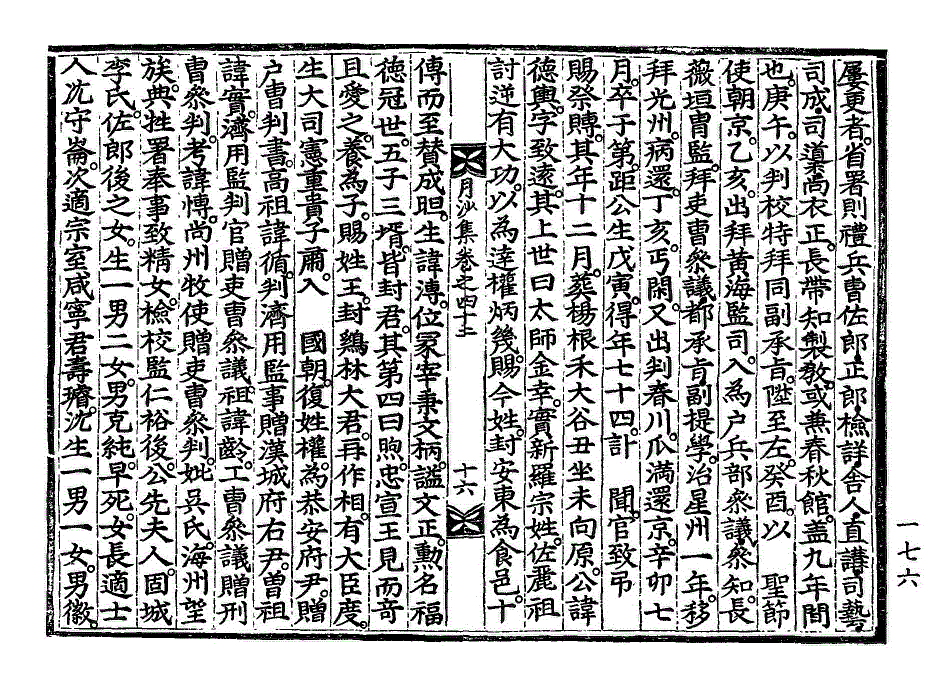 屢更者。省署則禮兵曹佐郎,正郎,檢詳,舍人,直講,司藝,
司成,司導,尙衣正。長帶知製敎。或兼春秋館。蓋九年間
也。庚午。以判校特拜同副承旨。陞至左。癸酉。以 聖節
使朝京。乙亥。出拜黃海監司。入爲戶兵部參議,參知。長
薇垣,胄監。拜吏曹參議,都承旨,副提學。治星州一年。移
拜光州。病還。丁亥。丐閑。又出判春川。瓜滿還京。辛卯七
月。卒于第。距公生戊寅。得年七十四。訃 聞。官致弔
賜祭賻。其年十二月。葬楊根禾大谷丑坐未向原。公諱
德輿。字致遠。其上世曰太師金幸。實新羅宗姓。佐麗祖
討逆有大功。以爲達權炳幾。賜今姓。封安東爲食邑。十
月沙集卷之四十二 十六
傳而至贊成㫜。生諱溥。位冢宰秉文柄。謚文正。勳名福
德冠世。五子三壻。皆封君。其第四曰煦。忠宣王見而奇
且愛之。養爲子。賜姓王。封鷄林大君。再作相。有大臣度。
生大司憲重貴子肅。入 國朝。復姓權。爲恭安府尹。贈
戶曹判書。高祖諱循。判濟用監事贈漢城府右尹。曾祖
諱實。濟用監判官贈吏曹參議。祖諱齡。工曹參議贈刑
曹參判。考諱愽。尙州牧使贈吏曹參判。妣吳氏。海州望
族。典牲署奉事致精女。檢校監仁裕後。公先夫人固城
李氏。佐郎後之女。生一男二女。男克純。早死。女長適士
人沈守崙。次適宗室咸寧君壽璿。沈生一男一女。男徽。
一七六